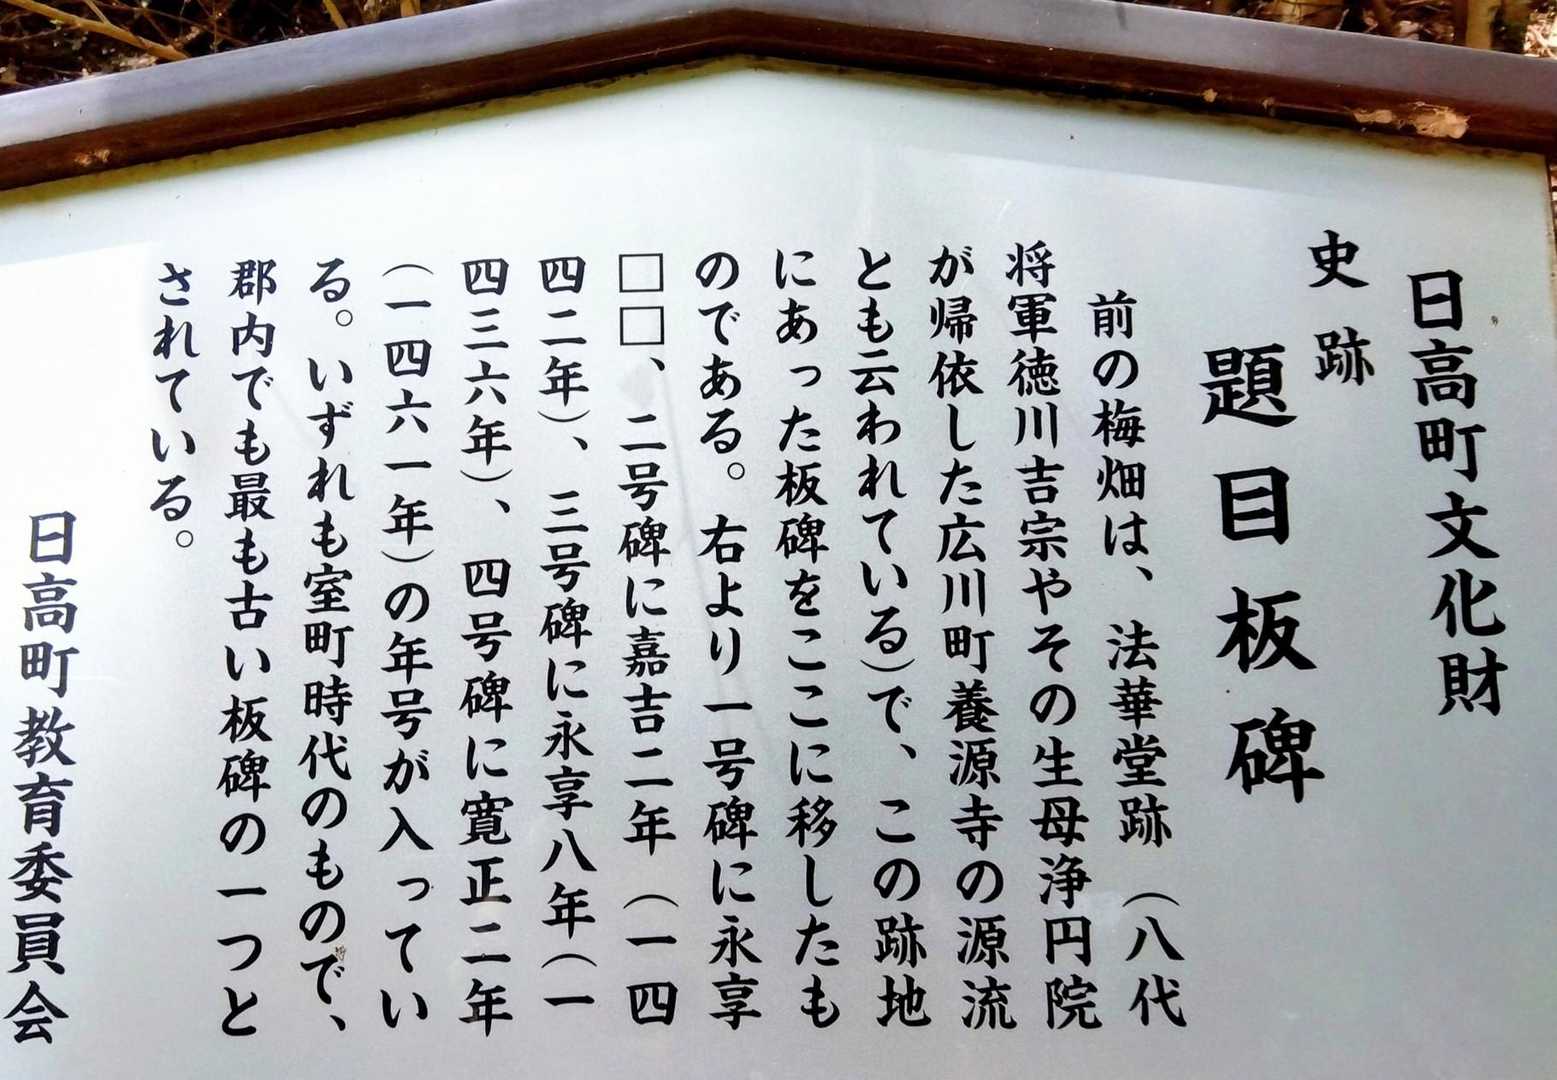 日高町文化財
史跡
題目板碑
前の梅畑は、法華堂跡（八代
将軍徳川吉宗やその生母浄円院
が帰依した広川町養源寺の源流
とも云われている）で、この跡地
にあった板碑をここに移したも
のである。右より一号碑に永享
□□、二号碑に嘉吉二年（一四
四二年）、三号碑に永享八年（一
四三六年）、四号碑に寛正二年
（一四六一年）の年号が入ってい
る。いずれも室町時代のもので、
郡内でも最も古い板碑の一つと
されている。
日高町教育委員会